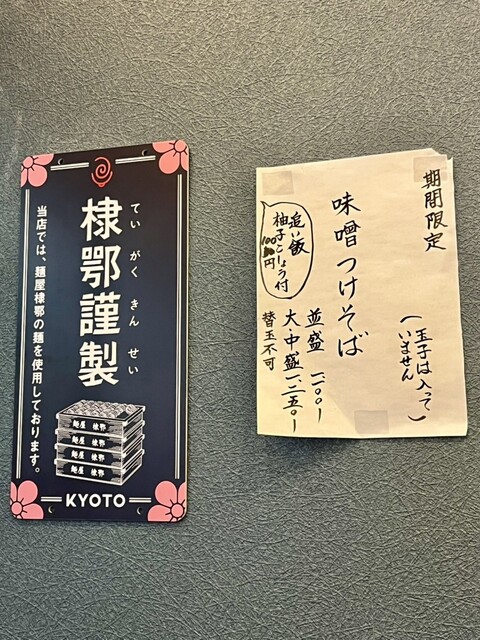 棣鄂謹製
ていがくきんせい
当店では、麺屋棣鄂の麺を使用しております。
麺屋 棣鄂
麺屋 棣鄂
麺屋 棣鄂
麺屋 棣鄂
KYOTO
期間限定
(玉子は入って
いません)
味噌つけそば
追い飯
柚子こしょう付
100円
並盛 一、一〇〇ー
大・中盛 一、二五〇ー
替玉不可